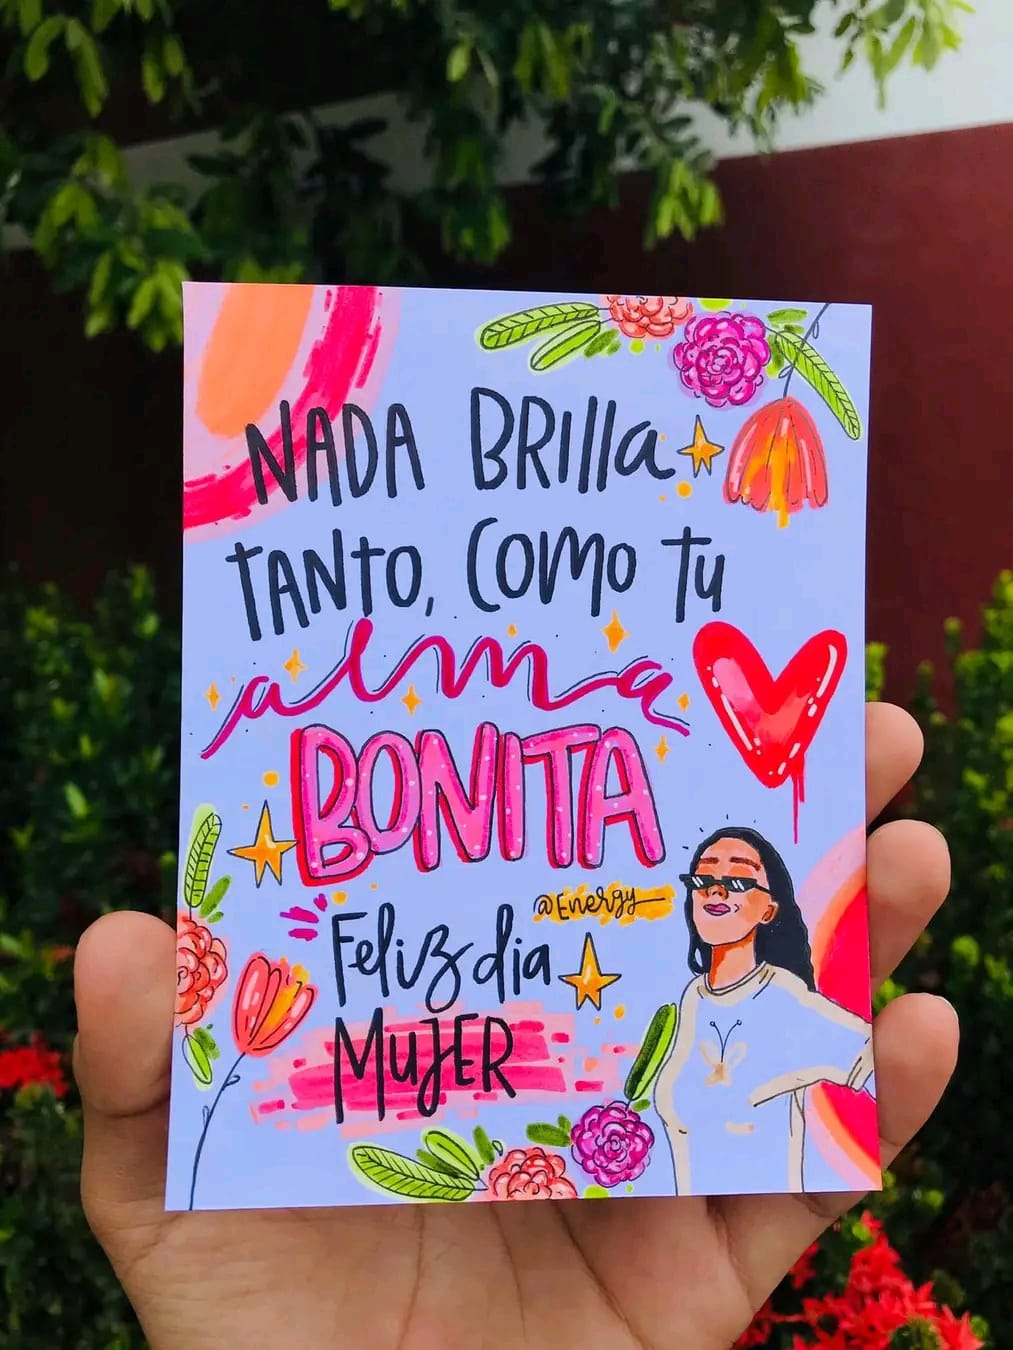 NADA BRIlla
TANtO, COMO Tu
alma
BONITA
@Energy
Feliz dia
MUJER